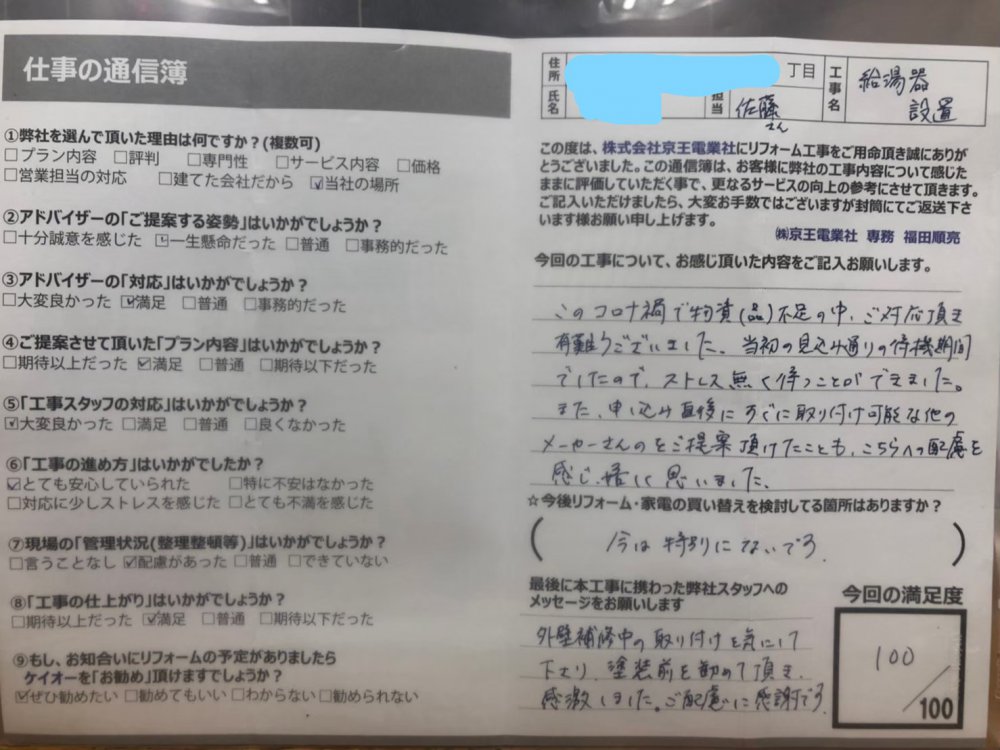 仕事の通信簿
①弊社を選んで頂いた理由は何ですか？(複数可)
□プラン内容 □評判 □専門性 □サービス内容 □価格
□営業担当の対応 □建てた会社だから ☑当社の場所
②アドバイザーの「ご提案する姿勢」はいかがでしょうか？
□十分誠意を感じた ☑一生懸命だった □普通 □事務的だった
③アドバイザーの「対応」はいかがでしょうか？
□大変良かった ☑満足 □普通 □事務的だった
④ご提案させて頂いた「プラン内容」はいかがでしょうか？
□期待以上だった ☑満足 □普通 □期待以下だった
⑤「工事スタッフの対応」はいかがでしょうか？
☑大変良かった □満足 □普通 □良くなかった
⑥「工事の進め方」はいかがでしたか？
☑とても安心していられた □特に不安はなかった
□対応に少しストレスを感じた □とても不満を感じた
⑦現場の「管理状況(整理整頓等)」はいかがでしょうか？
□言うことなし ☑配慮があった □普通 □できていない
⑧「工事の仕上がり」はいかがでしょうか？
□期待以上だった ☑満足 □普通 □期待以下だった
⑨もし、お知合いにリフォームの予定がありましたら
ケイオーを「お勧め」頂けますでしょうか？
☑ぜひ勧めたい □勧めてもいい □わからない □勧められない
住所 丁目
氏名 担当 佐藤さん
工事名 給湯器
設置
この度は、株式会社京王電業社にリフォーム工事をご用命頂き誠にありが
とうございました。この通信簿は、お客様に弊社の工事内容について感じた
ままに評価していただく事で、更なるサービスの向上の参考にさせて頂きます。
ご記入いただけましたら、大変お手数ではございますが封筒にてご返送下さ
います様お願い申し上げます。
㈱京王電業社 専務 福田順亮
今回の工事について、お感じ頂いた内容をご記入お願いします。
このコロナ禍で物資(品)不足の中、ご対応頂き
有難うございました。当初の見込み通りの待機期間
でしたので、ストレス無く待つことができました。
また、申し込み直後にすぐに取り付け可能な他の
メーカーさんのをご提案頂けたことも、こちらへの配慮を
感じ、嬉しく思いました。
☆今後リフォーム・家電の買い替えを検討してる箇所はありますか？
(今は特別にないです)
最後に本工事に携わった弊社スタッフへの
メッセージをお願いします
外壁補修中の取り付けを気にして
下さり、塗装前を勧めて頂き、
感激しました。ご配慮に感謝です。
今回の満足度
100
/100